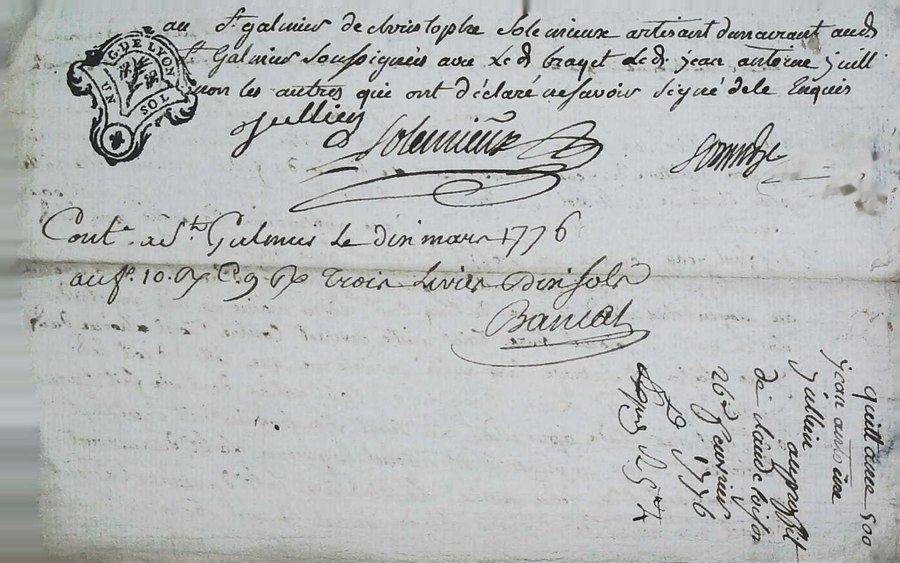 au St galmier de christophe Solemieux artisant demeurant aud
St Galmier soussignés avec Led brayet Led jean antoine jull
non les autres que ont déclaré ne savoir signé de le Enquis
G. DE LYON
UN SOL
jullien
Solemieux
Cont. a St Galmier Le dix mars 1776
au f. 10. C. 9 Trois Livres dix sols
Bancal
quittance 500
jean antoine
jullien au proffit
de claude
26 fevrier
1776